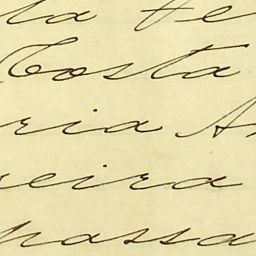 ta Fe
Costa
ria A
reira
passa